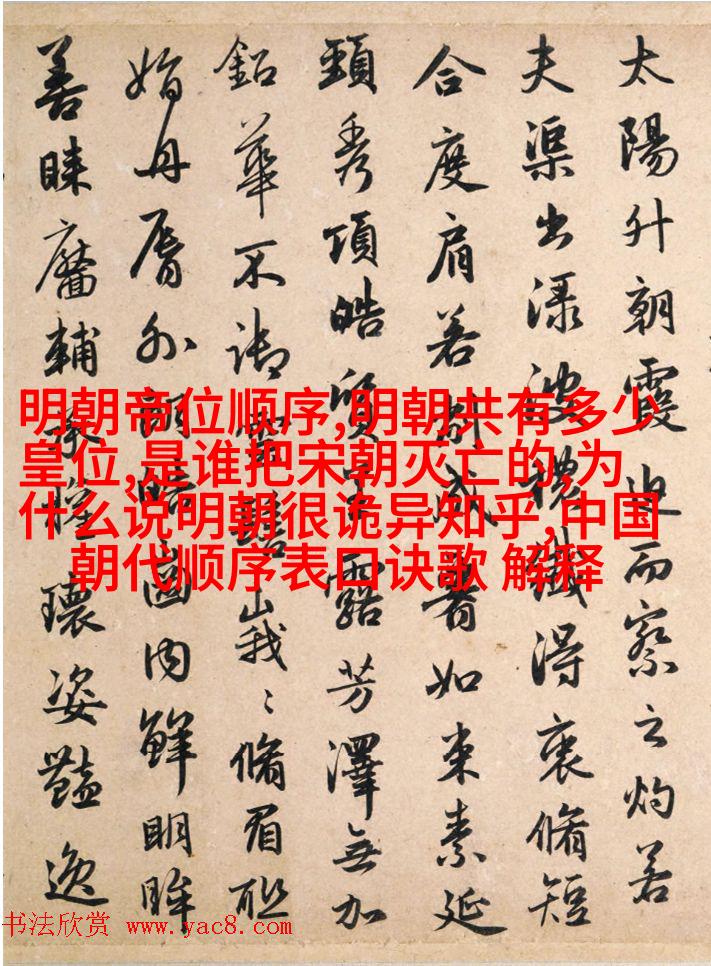 太陽升朝霞迫而察之灼若
夫渠出渌波襛纖得衷脩短
合度肩若削成如束素延
頸秀項皓質呈露芳澤無加
鉛華不御雲髻峩〻脩眉聯
娟丹脣外朗皓齒内鮮明眸
善睞靨輔承權瓌姿豔逸
明朝帝位顺序,明朝共有多少
皇位,是谁把宋朝灭亡的,为
什么说明朝很诡异知乎,中国
朝代顺序表口诀歌 解释
书法欣赏 www.yac8.com